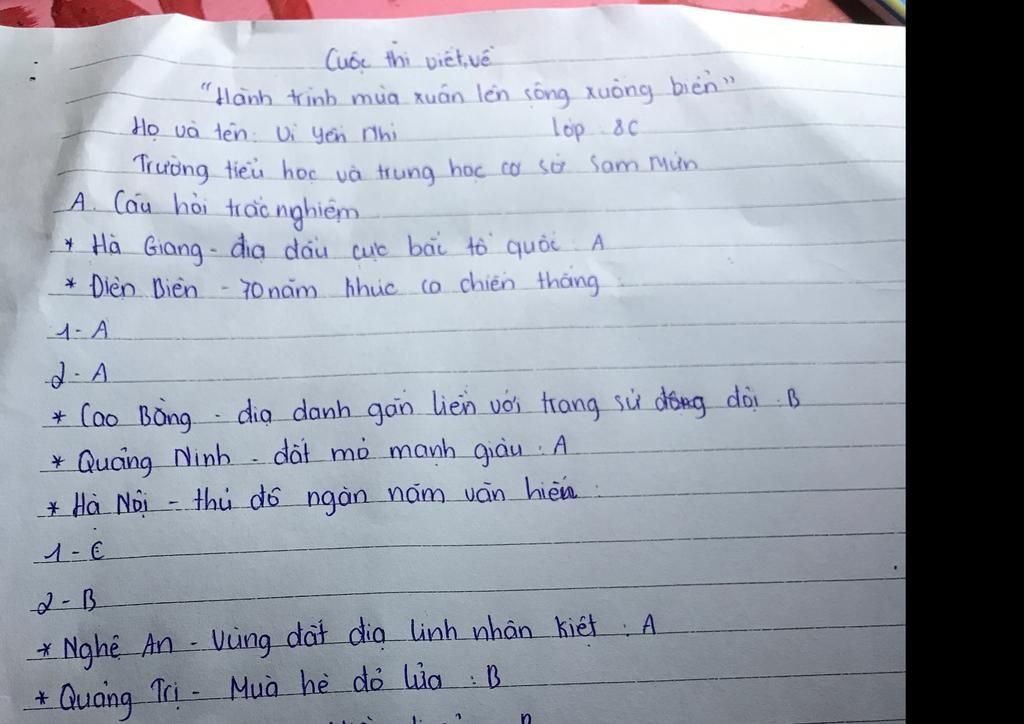 Cuộc thi viết về
"Hành trình mùa xuân lên sông xuông biển"
Họ và tên: Vi Yến Nhi lớp 8C
Trường tiểu học và trung học cơ sở Sam Mứn
A. Câu hỏi trắc nghiệm
* Hà Giang - địa đầu cực bắc tổ quốc : A
* Điện Biên - 70 năm khúc ca chiến thắng :
1 - A
2 - A
* Cao Bằng - địa danh gắn liền với trang sử đông dội : B
* Quảng Ninh - đất mỏ mạnh giàu : A
* Hà Nội - thủ đô ngàn năm văn hiến :
1 - C
2 - B
* Nghệ An - Vùng đất địa linh nhân kiệt : A
* Quảng Trị - Mùa hè đỏ lửa : B